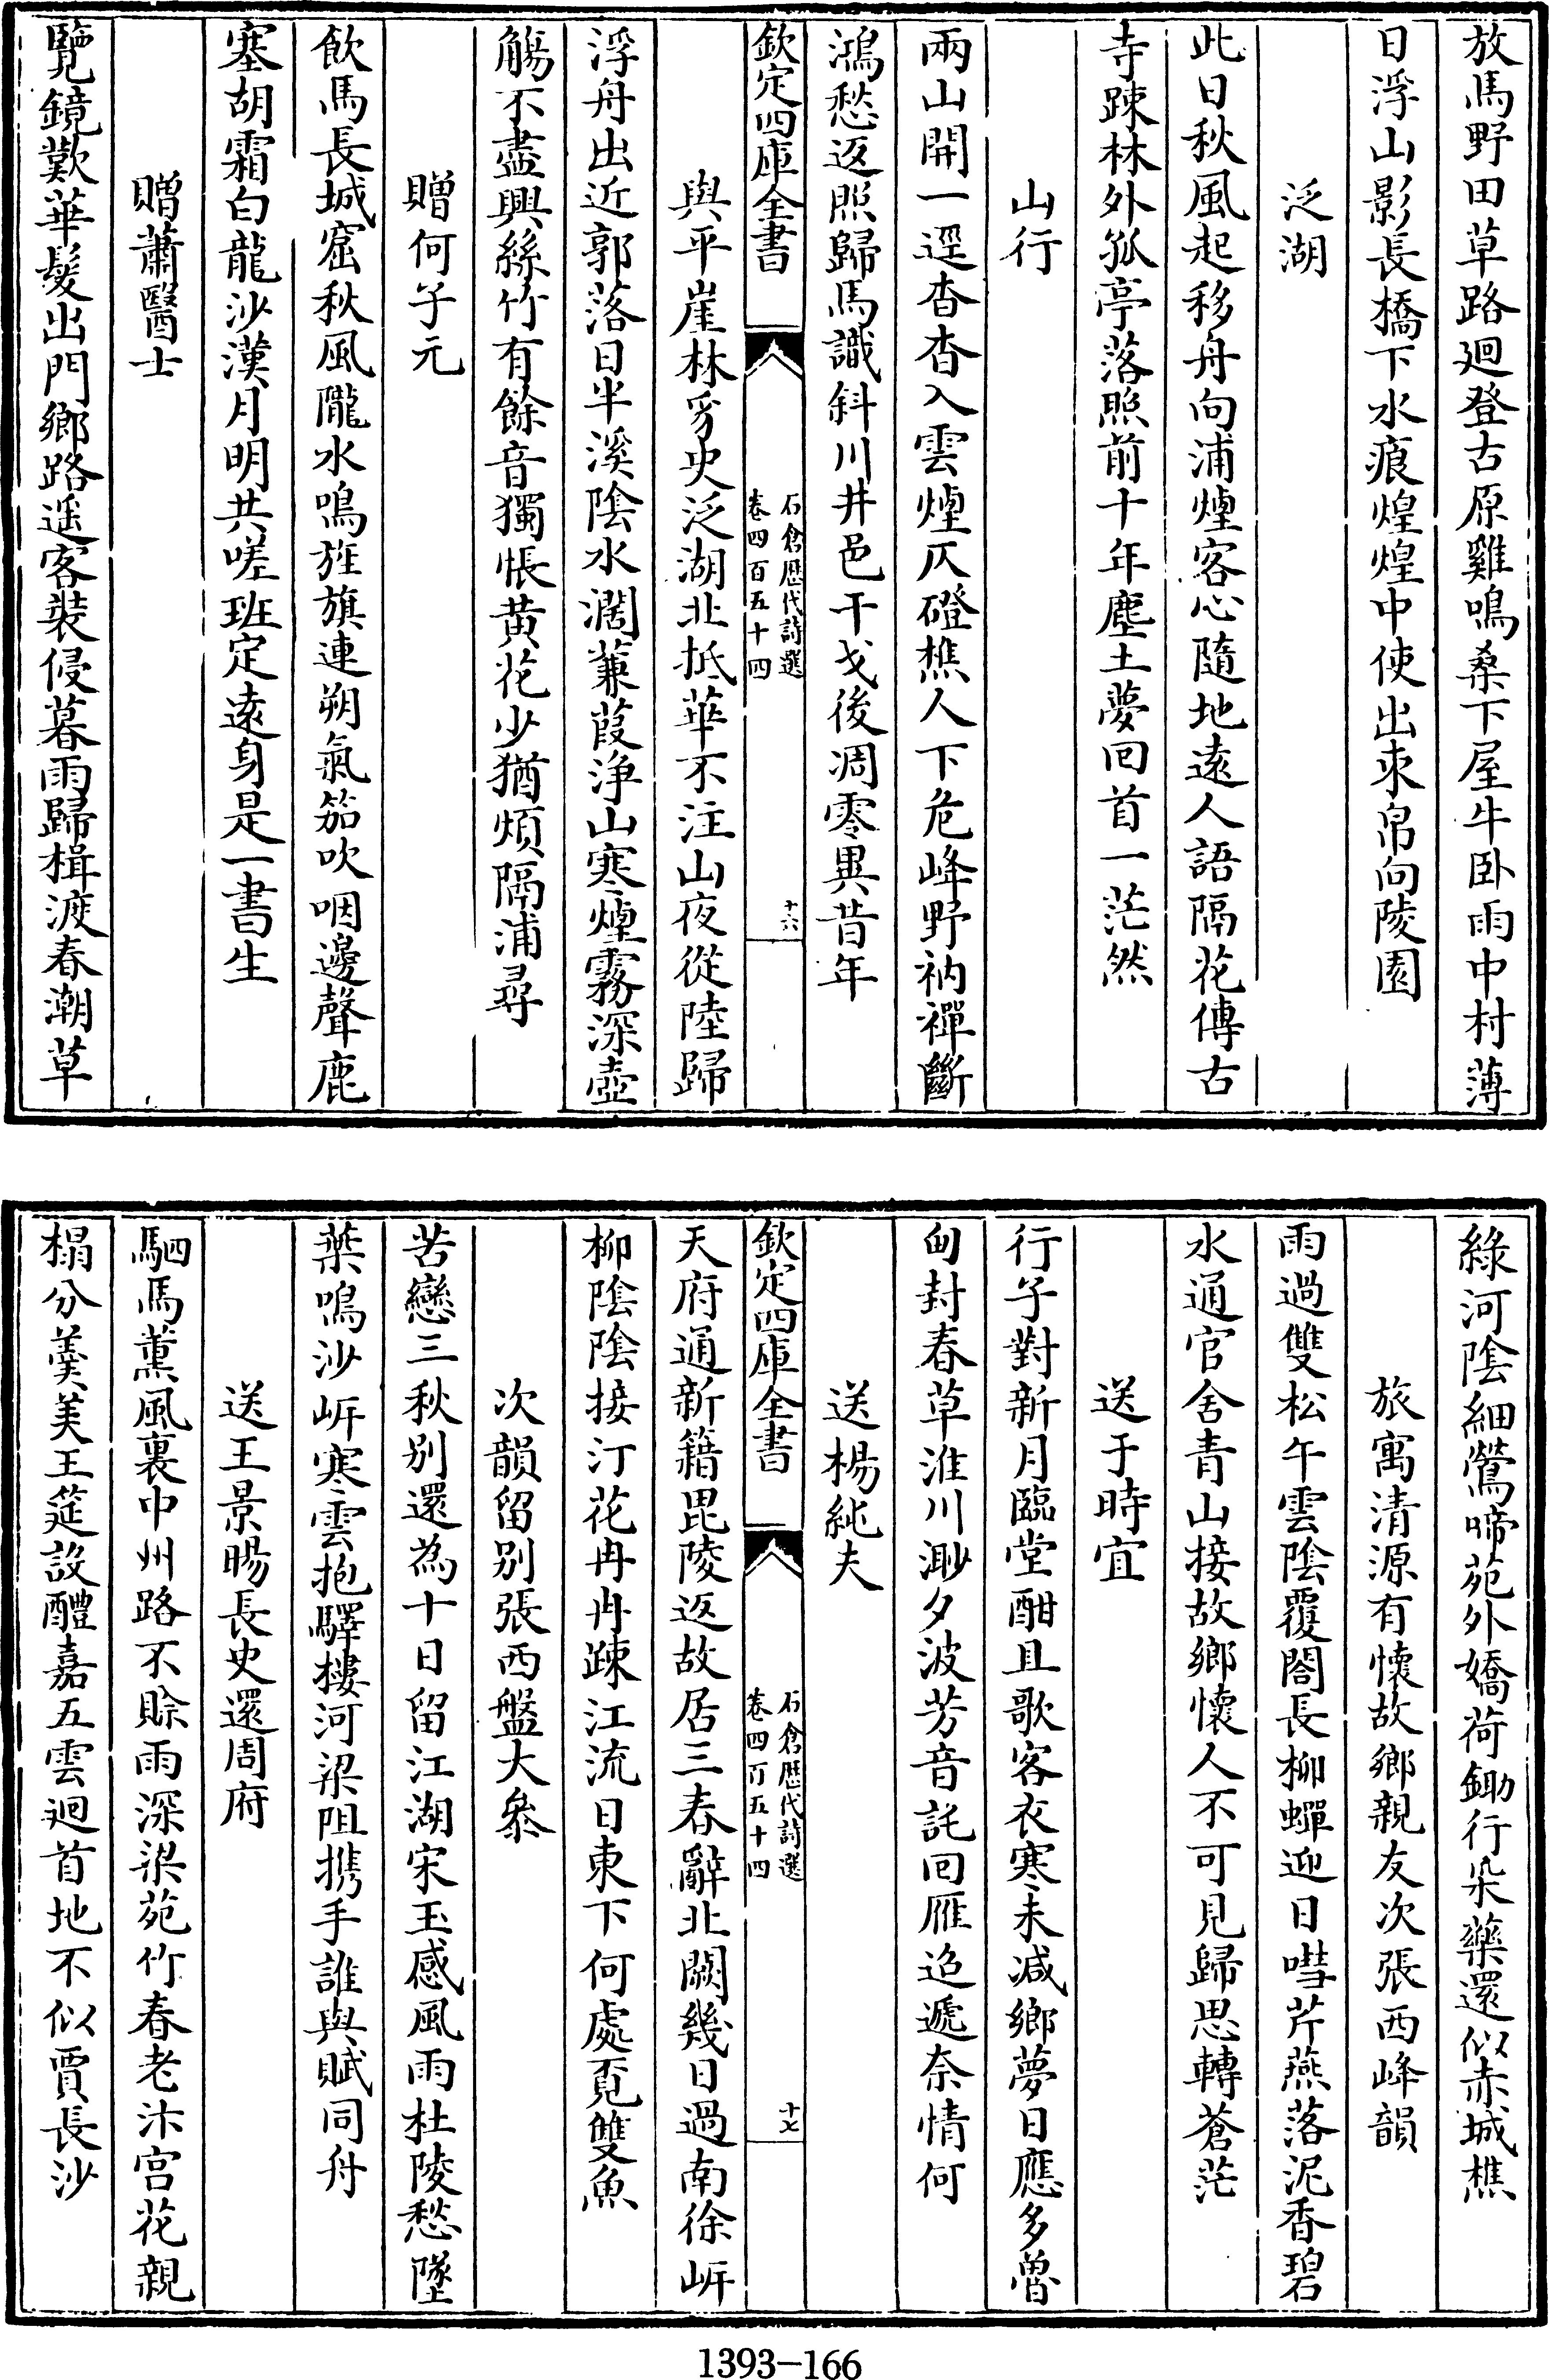 放馬野田草路迴登古原雞鳴桑下屋牛卧雨中村薄
日浮山影長橋下水痕煌煌中使出束帛向陵園
泛湖
此日秋風起移舟向浦煙客心隨地遠人語隔花傳古
寺踈林外孤亭落照前十年塵土夢回首一茫然
山行
兩山開一逕杳杳入雲煙仄磴樵人下危峰野衲禪斷
鴻愁返照歸馬識斜川井邑干戈後凋零異昔年
欽定四庫全書
石倉歴代詩選
卷四百五十四
十六
與平崖林豸史泛湖北抵華不注山夜從陸歸
浮舟出近郭落日半溪陰水濶蒹葭浄山寒煙霧深壺
觴不盡興絲竹有餘音獨悵黄花少猶煩隔浦尋
贈何子元
飲馬長城窟秋風隴水鳴旌旗連朔氣笳吹咽邊聲鹿
塞胡霜白龍沙漢月明共嗟班定遠身是一書生
贈蕭醫士
覽鏡歎華髮出門鄉路遥客裝侵暮雨歸楫渡春潮草
綠河陰細鶯啼苑外嬌荷鋤行采藥還似赤城樵
旅寓清源有懷故鄉親友次張西峰韻
雨過雙松午雲陰覆閤長柳蟬迎日嘒芹燕落泥香碧
水通官舍青山接故鄉懷人不可見歸思轉蒼茫
送于時宜
行子對新月臨堂酣且歌客衣寒未减鄉夢日應多魯
甸封春草淮川渺夕波芳音託回雁迢遞奈情何
送楊純夫
欽定四庫全書
石倉歴代詩選
卷四百五十四
十七
天府通新籍毘陵返故居三春辭北闕幾日過南徐岍
柳陰陰接汀花冉冉踈江流日東下何處覓雙魚
次韻留别張西盤大叅
苦戀三秋别還為十日留江湖宋玉感風雨杜陵愁墜
葉鳴沙岍寒雲抱驛樓河梁阻携手誰與賦同舟
送王景暘長史還周府
駟馬薰風裏中州路不賖雨深梁苑竹春老汴宫花親
榻分羹美王筵設醴嘉五雲迴首地不似賈長沙
1393-166